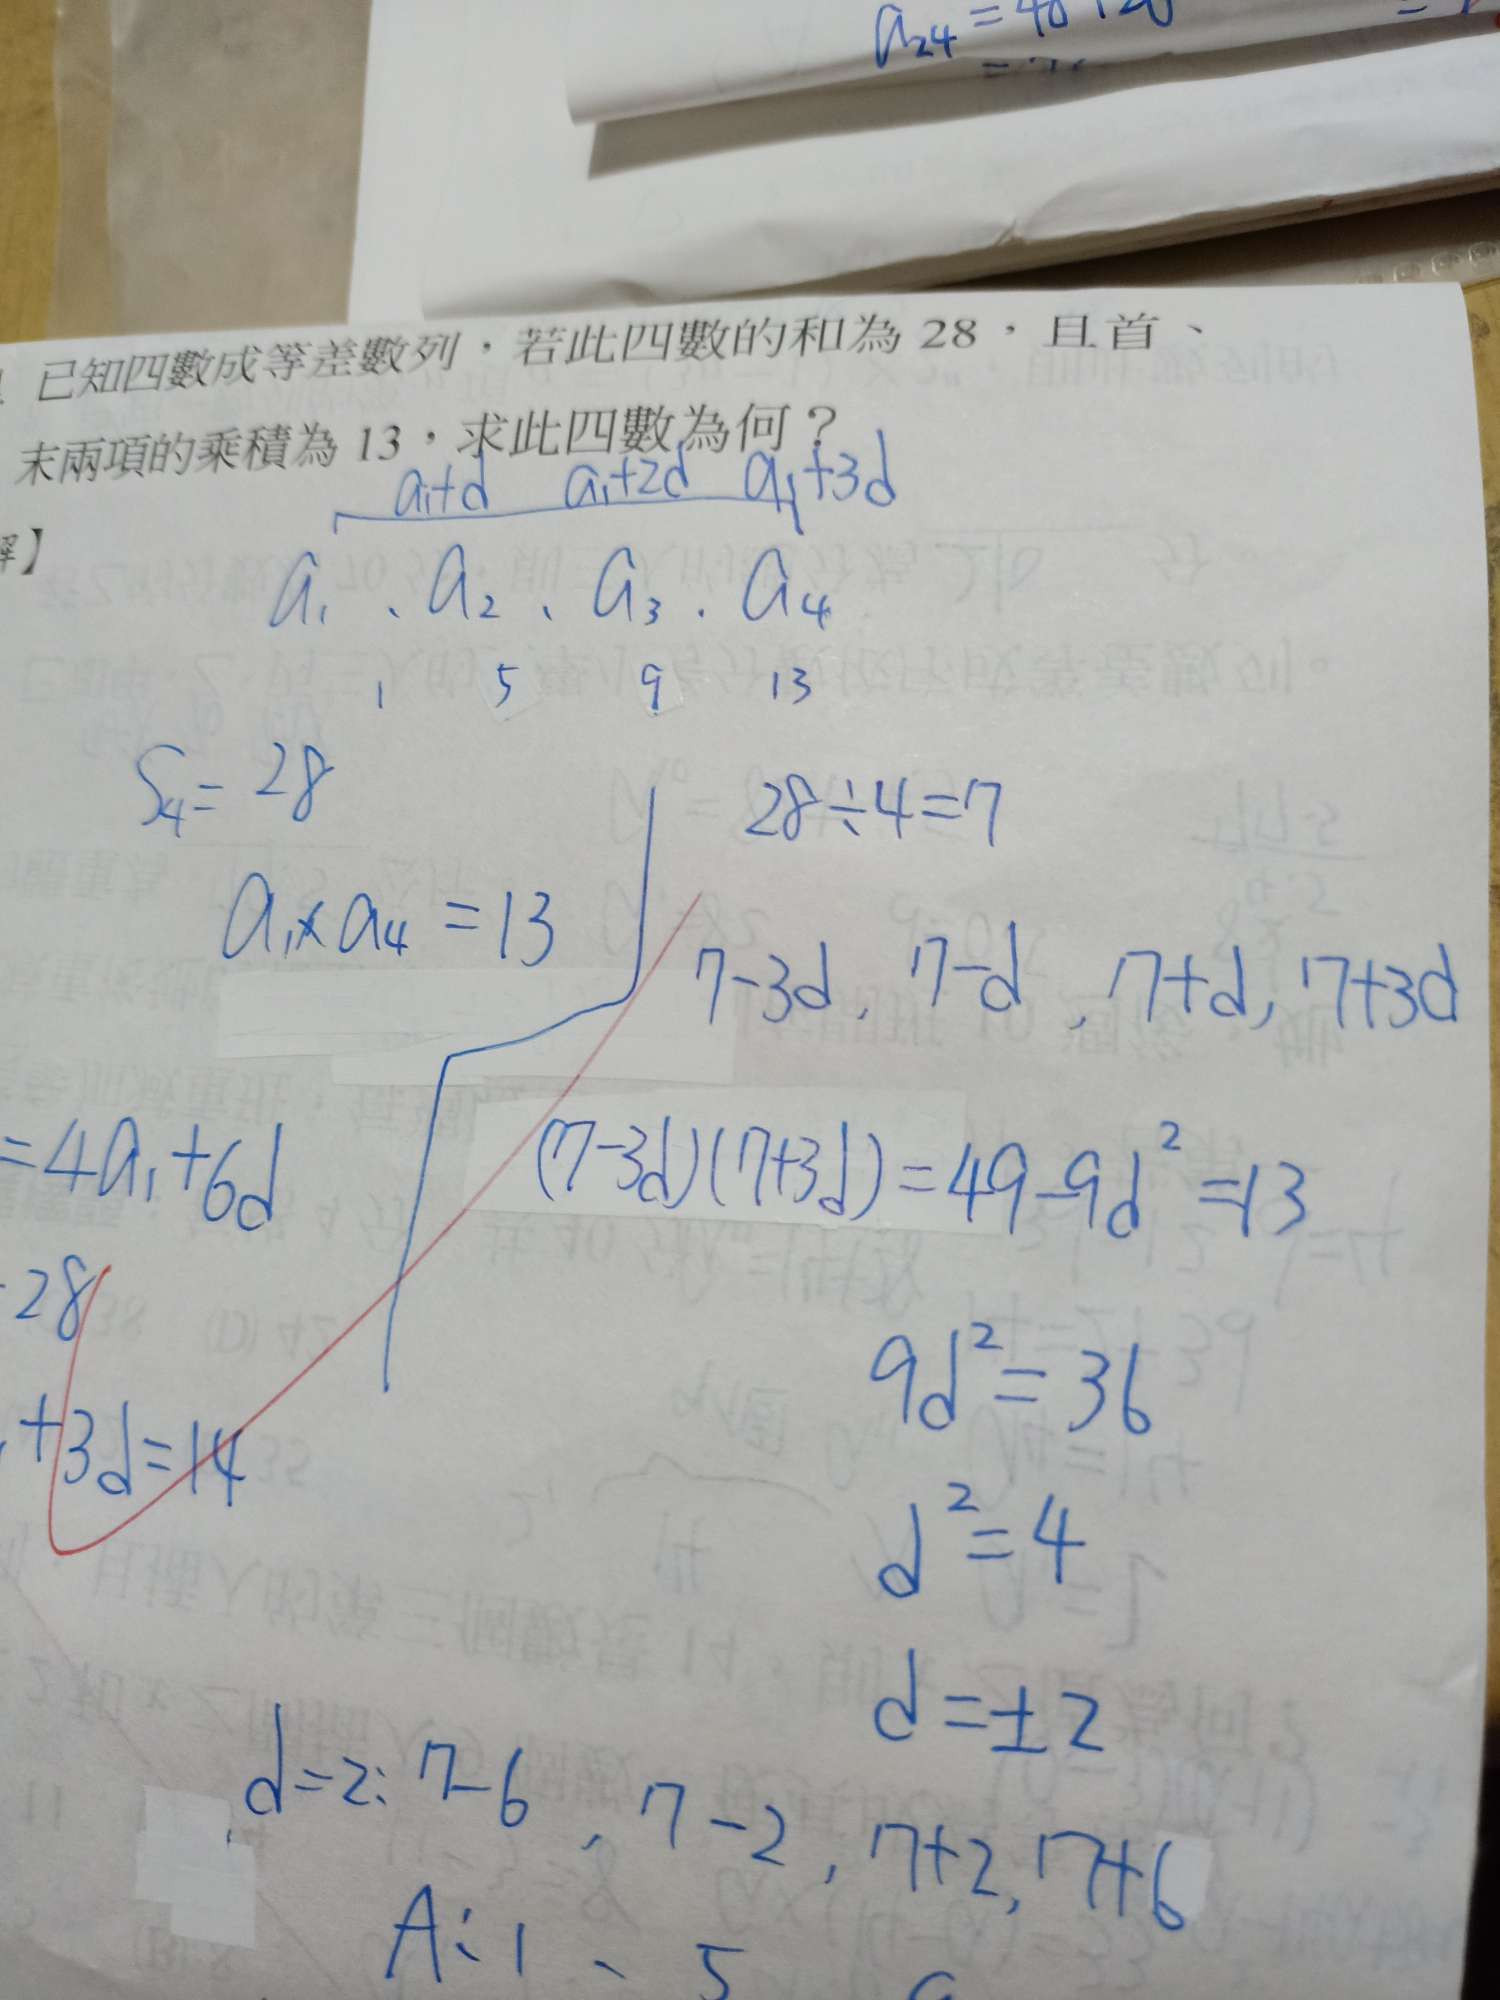 a₂₄ = 40
已知四數成等差數列，若此四數的和為 28，且首、
末兩項的乘積為 13，求此四數為何？
a₁+d a₁+2d a₁+3d
解】
a₁、a₂、a₃、a₄
1 5 9 13
S₄ = 28
28÷4=7
a₁×a₄ = 13
7-3d, 7-d, 7+d, 7+3d
=4a₁+6d
(7-3d)(7+3d)=49-9d²=13
28
9d²=36
+3d=14
d²=4
d=±2
d=2: 7-6, 7-2, 7+2, 7+6
A:1、5